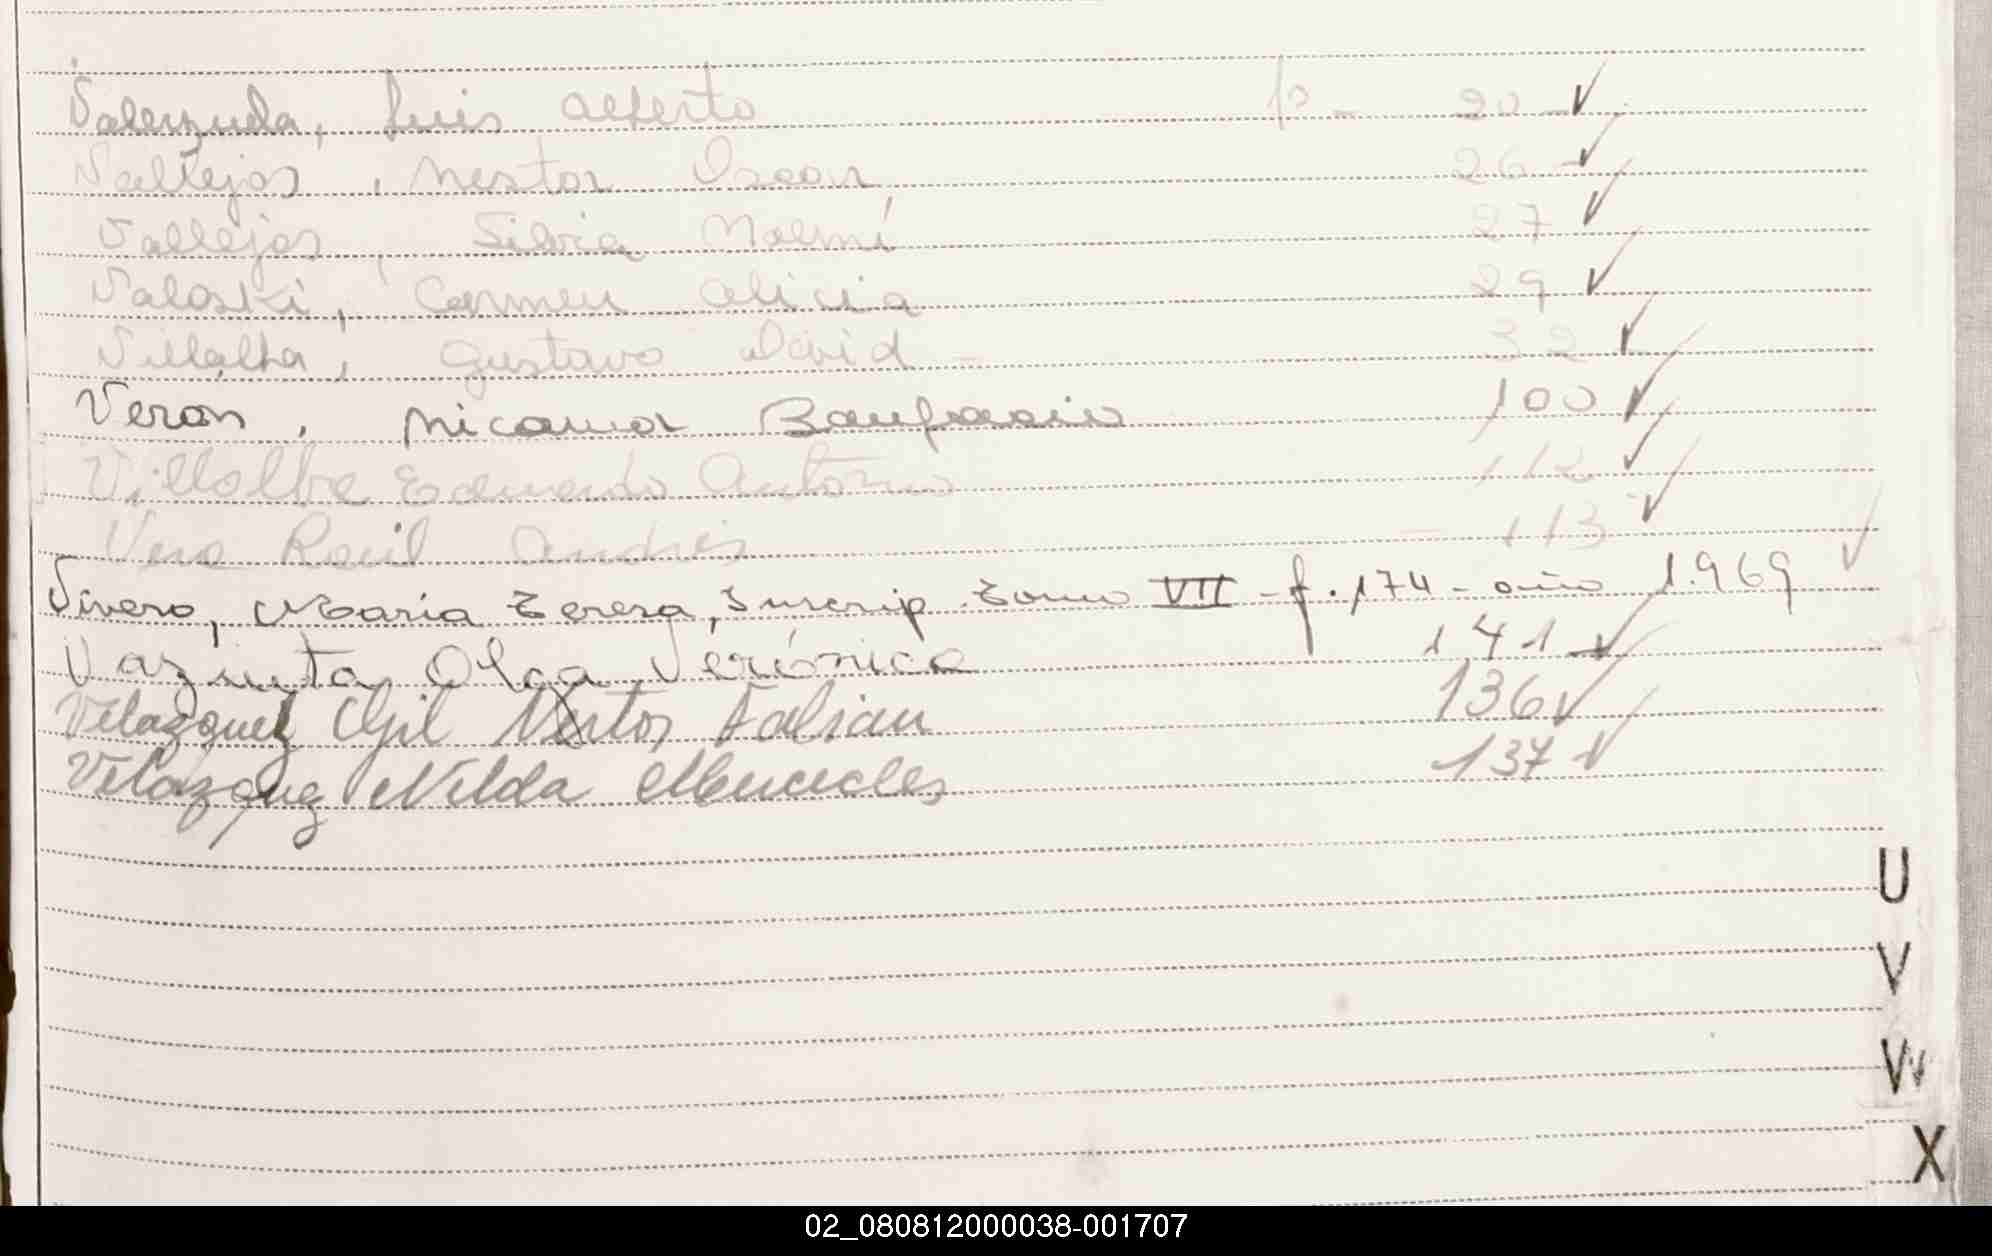 Valenzuela, Luis Alberto fº - 20 - ✓
Vallejos, Nestor Oscar 26 - ✓
Vallejos, Silvia Noemí 27 ✓
Valoski, Carmen Alicia 29 ✓
Villalba, Gustavo David - 32 ✓
Veron, Nicanor Bonifacio 100 ✓
Villalba Eduardo Antonio 112 ✓
Vera Raúl Andrés - 113 ✓
Vivero, Maria Teresa, Inscrip. Tomo VII - f. 174 - año 1.969 ✓
Vazquta Olga Verónica 141 ✓
Velazquez Gil Nestor Fabian 136 ✓
Velazquez Nilda Mercedes 137 ✓
U
V
W
X
02_080812000038-001707